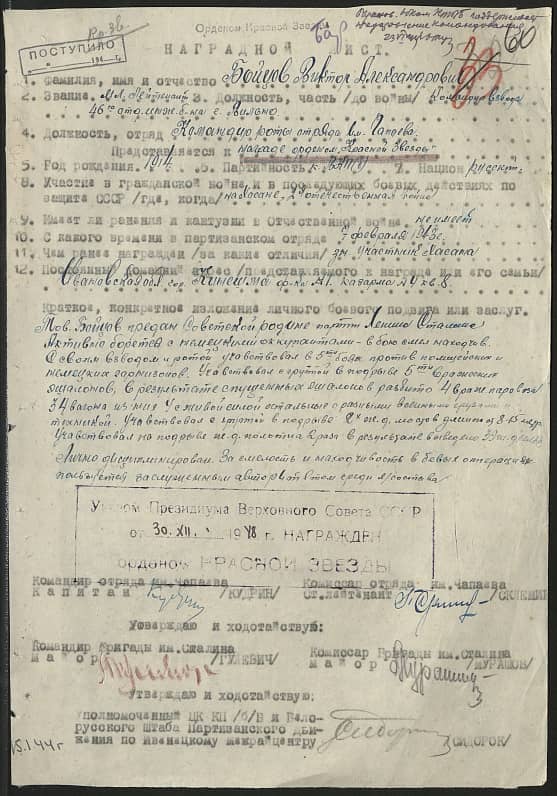 Орденом Красной Звезды
ПОСТУПИЛО
194 г.
60
НАГРАДНОЙ ЛИСТ.
1. Фамилия, имя и отчество Бойцов Виктор Александрович
2. Звание Мл. лейтенант 3. Должность, часть /до войны/ Командир взвода
46
4. Должность, отряд Командир роты отряда им. Чапаева
Представляется к награде орденом "Красной Звезды"
5. Год рождения 1914 6. Партийность 7. Национ/ русский
8. Участие в гражданской войне и в последующих боевых действиях по
защите СССР /где, когда/ на Хасане, Отечественная война
9. Имеет ли ранения и кантузии в Отечественной войне не имеет
10. С какого времени в партизанском отряде 7 февраля 1943г.
11. Чем ранее награжден /за какие отличия/ зн. Участник Хасана
12. Постоянный домашний адрес /представляемого к награде или его семьи/
Ивановская обл. гор. Кинешма ф-ка №1. казарма №4 кв. 8.
Краткое, конкретное изложение личного боевого подвига или заслуг.
Тов. Бойцов предан Советской родине партии Ленина Сталина
Активно борется с немецкими оккупантами - в бою смел находчив.
Со своим взводом и ротой участвовал в 5ти боях против полицейских и
немецких гарнизонов. Участвовал с группой в подрыве 5ти вражеских
эшалонов, в результате спущенных эшалонов разбито 4 враж. паровоза
34 вагона из них 7 с живой силой остальные с разными военными грузами и
техникой. Участвовал с группой в подрыве 2х ж.д. мостов длиной
Участвовал на подрыве ж.д. полотна врага в результате выведено
Лично дисциплинирован. За смелость и находчивость в боевых операциях
пользуется заслуженным авторитетом среди л/состава
Указом Президиума Верховного Совета СССР
от 30. XII. 1948 г. НАГРАЖДЕН
орденом КРАСНОЙ ЗВЕЗДЫ
Командир отряда им. Чапаева
Комиссар отряда им. Чапаева
Капитан /КУДРИН/
Ст. лейтенант /СКЛЕНИН
Утверждаю и ходотайствую:
Командир Бригады им. Сталина
Комиссар Бригады им. Сталина
Майор /ГУЛЕВИЧ/
Майор /МУРАШОВ/
Утверждаю и ходотайствую:
Уполномоченный ЦК КП /б/Б и Бело-
русского Штаба Партизанского дви-
жения по Ивенецкому межрайцентру /СИДОРОК/
15.1.44г